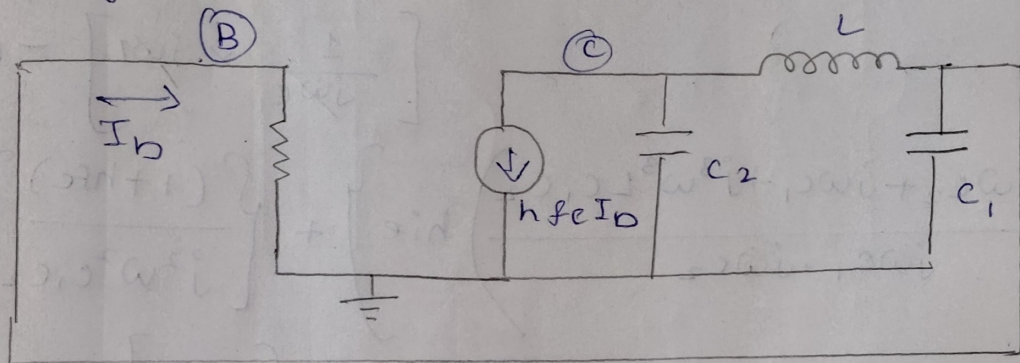 B
I b
C
h fe I b
C 2
L
C 1